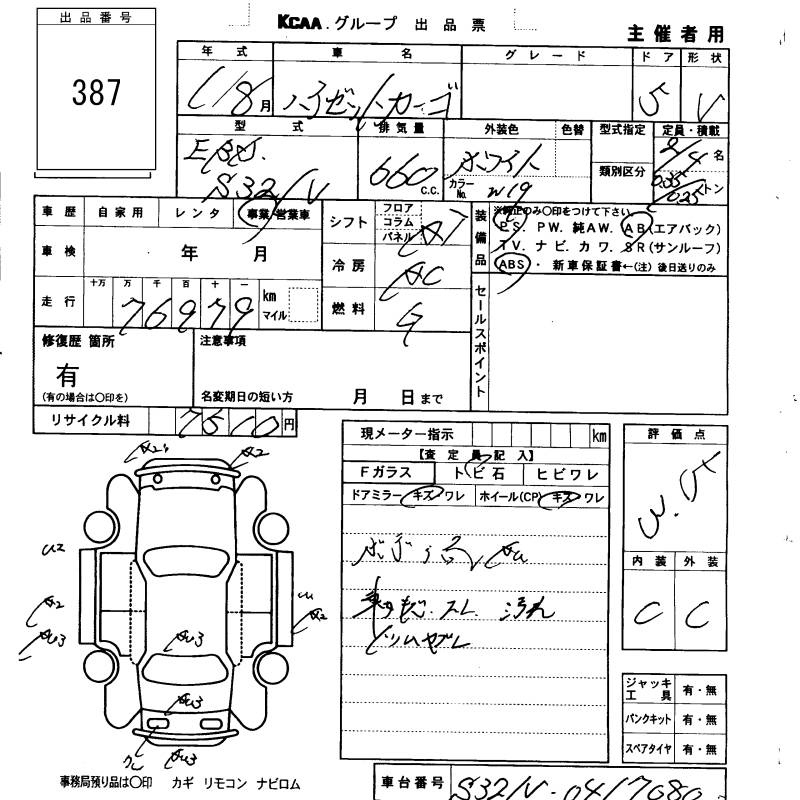 出品番号
387
KCAA.グループ 出品票
主催者用
年式 車名 グレード ドア 形状
月 ハイゼットカーゴ 5 V
型式 排気量 外装色 色替 型式指定 定員・積載
EBD. 660 c.c. ホワイト 類別区分 2/4 名
S321V カラーNo. W19 0.35/0.25 トン
車歴 自家用 レンタ 事業・営業車
シフト フロア コラム パネル AT
装備品 ※純正のみ〇印をつけて下さい
P.S. P.W. 純A.W. AB(エアバック)
T.V. ナビ. カワ. SR(サンルーフ)
ABS・ 新車保証書←(注) 後日送りのみ
車検 年 月
冷房 AC
走行 十万 万 千 百 十 一
76979 km マイル
燃料 G
セールスポイント
修復歴 箇所
有
(有の場合は〇印を)
注意事項
名変期日の短い方 月 日まで
リサイクル料 7510 円
現メーター指示 km
【査定員記入】
Fガラス トビ石 ヒビワレ
ドアミラー キズ ワレ ホイール(CP) キズ ワレ
汚れ
評価点
内装 外装
C C
A2
U2
A2
ジャッキ工具 有・無
パンクキット 有・無
スペアタイヤ 有・無
事務局預り品は〇印 カギ リモコン ナビロム
車台番号 S321V-0417080